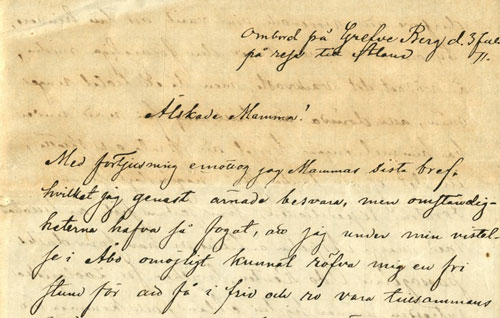 Ombord på Grefve Berg d. 3 Juli
på resa till Åland 71.
Älskade Mamma!
Med förtjusning emottog jag Mammas sista bref,
hvilket jag genast ärnade besvara, men omständig-
heterna hafva så fogat, att jag under min vistel-
se i Åbo omöjligt kunnat röfva mig en fri
stund för att få i frid och ro vara tillsammans